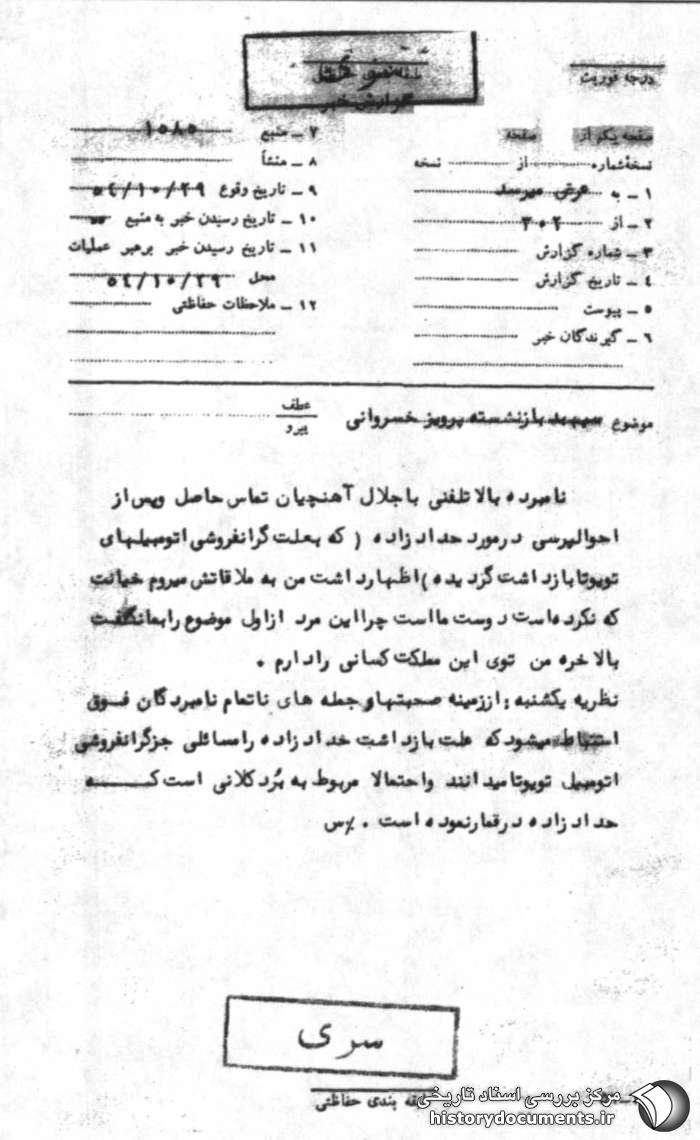 گزارش خبر
درجه فوریت
صفحه یکم از صفحه
نسخه شماره از نسخه
۱ ـ به عرض میرسد
۲ ـ از ۳۰۲
۳ ـ شماره گزارش
٤ ـ تاریخ گزارش
٥ ـ پیوست
٦ ـ گیرندگان خبر
۷ ـ منبع ۱۰۸۵
۸ ـ منشأ
۹ ـ تاریخ وقوع ٥٤/۱۰/۲۹
۱۰ ـ تاریخ رسیدن خبر به منبع
۱۱ ـ تاریخ رسیدن خبر برهبر عملیات
محل ٥٤/۱۰/۲۹
۱۲ ـ ملاحظات حفاظتی
موضوع سپهبد بازنشسته پرویز خسروانی
عطف
پیرو
نامبرده بالا تلفنی با جلال آهنچیان تماس حاصل وپس از
احوالپرسی درمورد حدادزاده (که بعلت گرانفروشی اتومبیلهای
تویوتا بازداشت گردیده) اظهارداشت من به ملاقاتش میروم خیانت
که نکرده است دوست ما است چرا این مرد ازاول موضوع رابمانگفت
بالاخره من توی این مملکت کسانی رادارم .
نظریه یکشنبه : اززمینه صحبتهاوجمله های ناتمام نامبردگان فوق
استنباط میشودکه علت بازداشت حدادزاده رامسائلی جزگرانفروشی
اتومبیل تویوتامیدانند واحتمالا مربوط به بُردکلانی است کــه
حدادزاده درقمارنموده است . /س
سری
بندی حفاظتی
مرکز بررسی اسناد تاریخی
historydocuments.ir